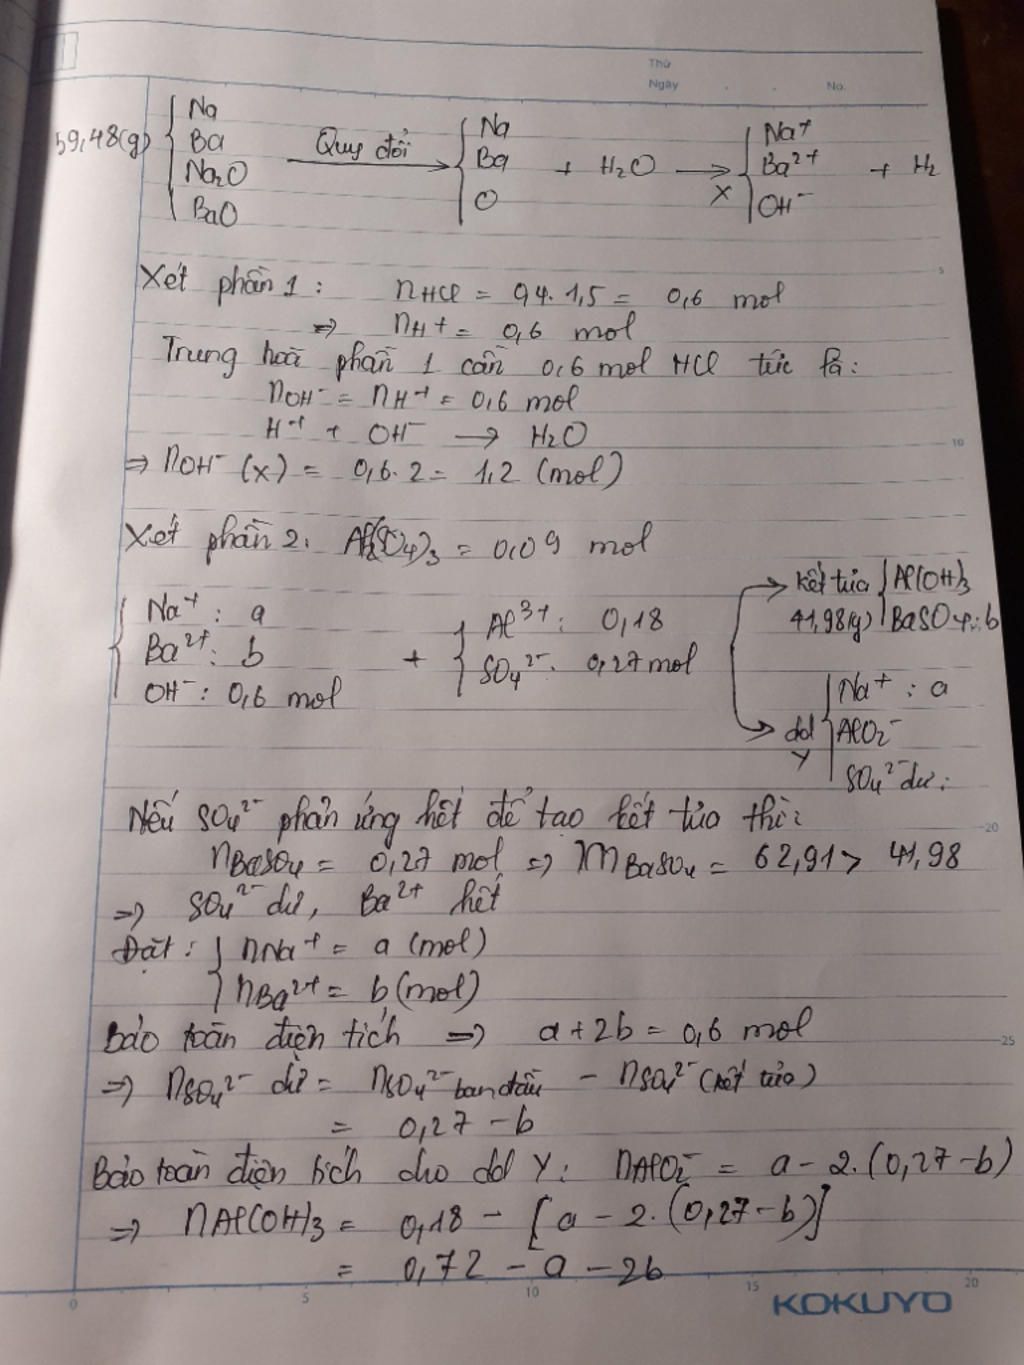 Thứ
Ngày No.
59,48(g) { Na Ba Na2O BaO
Quy đổi → { Na Ba O + H2O → X { Na+ Ba2+ OH- + H2
Xét phần 1: nHCl = 0,4. 1,5 = 0,6 mol
=> nH+ = 0,6 mol
Trung hoà phần 1 cần 0,6 mol HCl tức là:
nOH- = nH+ = 0,6 mol
H+ + OH- → H2O
=> nOH- (x) = 0,6. 2 = 1,2 (mol)
Xét phần 2: Al2(SO4)3 = 0,09 mol
{ Na+ : a Ba2+ : b OH- : 0,6 mol + { Al3+ : 0,18 SO42- : 0,27 mol
→ kết tủa 41,98(g) { Al(OH)3 BaSO4: b
→ dd Y { Na+ : a AlO2- SO42- dư:
Nếu SO42- phản ứng hết để tạo kết tủa thì:
nBaSO4 = 0,27 mol => mBaSO4 = 62,91 > 41,98
=> SO42- dư, Ba2+ hết
Đặt: { nNa+ = a (mol)
nBa2+ = b (mol)
Bảo toàn điện tích => a + 2b = 0,6 mol
=> nSO42- dư = nSO42- ban đầu - nSO42- (kết tủa)
= 0,27 - b
Bảo toàn điện tích cho dd Y: nAlO2- = a - 2.(0,27 - b)
=> nAl(OH)3 = 0,18 - [a - 2.(0,27 - b)]
= 0,72 - a - 2b
5
10
20
25
0 5 10 15 20
KOKUYO